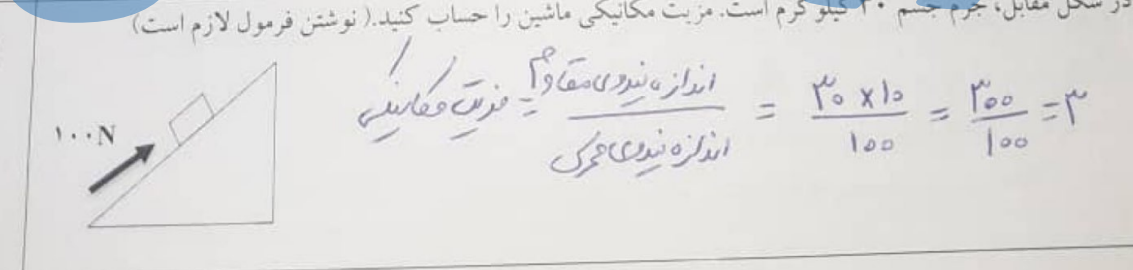 در شکل مقابل، جرم جسم ۳۰ کیلو گرم است. مزیت مکانیکی ماشین را حساب کنید.( نوشتن فرمول لازم است)
مزیت مکانیکی = اندازه نیروی مقاوم / اندازه نیروی محرک = ۳۰ × ۱۰ / ۱۰۰ = ۳۰۰ / ۱۰۰ = ۳
۱۰۰N